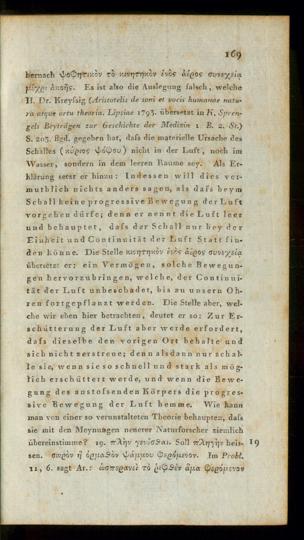 169
hernach ψοφητικὸν τὸ κινητικὸν ἑνὸς ἀέρος συνεχείᾳ
μέχρι ἀκοῆς. Es ist also die Auslegung falsch, welche
H. Dr. Kreyssig (Aristotelis de soni et vocis humanae natu-
ra atque ortu theoria. Lipsiae 1793. übersetzt in K. Spren-
gels Beyträgen zur Geschichte der Medizin 1 B. 2. St.)
S. 207. sqd. gegeben hat, daß die materielle Ursache des
Schalles (κύριος ψόφου) nicht in der Luft, noch im
Wasser, sondern in dem leeren Raume sey. Als Er-
klärung setzt er hinzu: Indessen will dies ver-
muthlich nichts anders sagen, als daß beym
Schall keine progressive Bewegung der Luft
vorgehen dürfe; denn er nennt die Luft leer
und behauptet, daß der Schall nur bey der
Einheit und Continuität der Luft Statt fin-
den könne. Die Stelle κινητικὸν ἑνὸς ἀέρος συνεχείᾳ
übersetzt er: ein Vermögen, solche Bewegun-
gen hervorzubringen, welche, der Continui-
tät der Luft unbeschadet, bis zu unsern Oh-
ren fortgepflanzt werden. Die Stelle aber, wel-
che wir eben hier betrachten, deutet er so: Zur Er-
schütterung der Luft aber werde erfordert,
daß dieselbe den vorigen Ort behalte und
sich nicht zerstreue; denn alsdann nur schal-
le sie, wenn sie so schnell und stark als mög-
lich erschüttert werde, und wenn die Bewe-
gung des anstoßenden Körpers die progres-
sive Bewegung der Luft hemme. Wie kann
man von einer so verunstalteten Theorie behaupten, daß
sie mit den Meynungen neuerer Naturforscher ziemlich
übereinstimme? 19. πλὴν γενέσθαι. Soll πληγὴν heis- 19
sen. σωρὸν ἢ ὁρμαθὸν ψάμμου φερόμενον. Im Probl.
11, 6. sagt Ar.: ὡσπερανεὶ τὸ ῥιφθὲν ἅμα φερόμενον